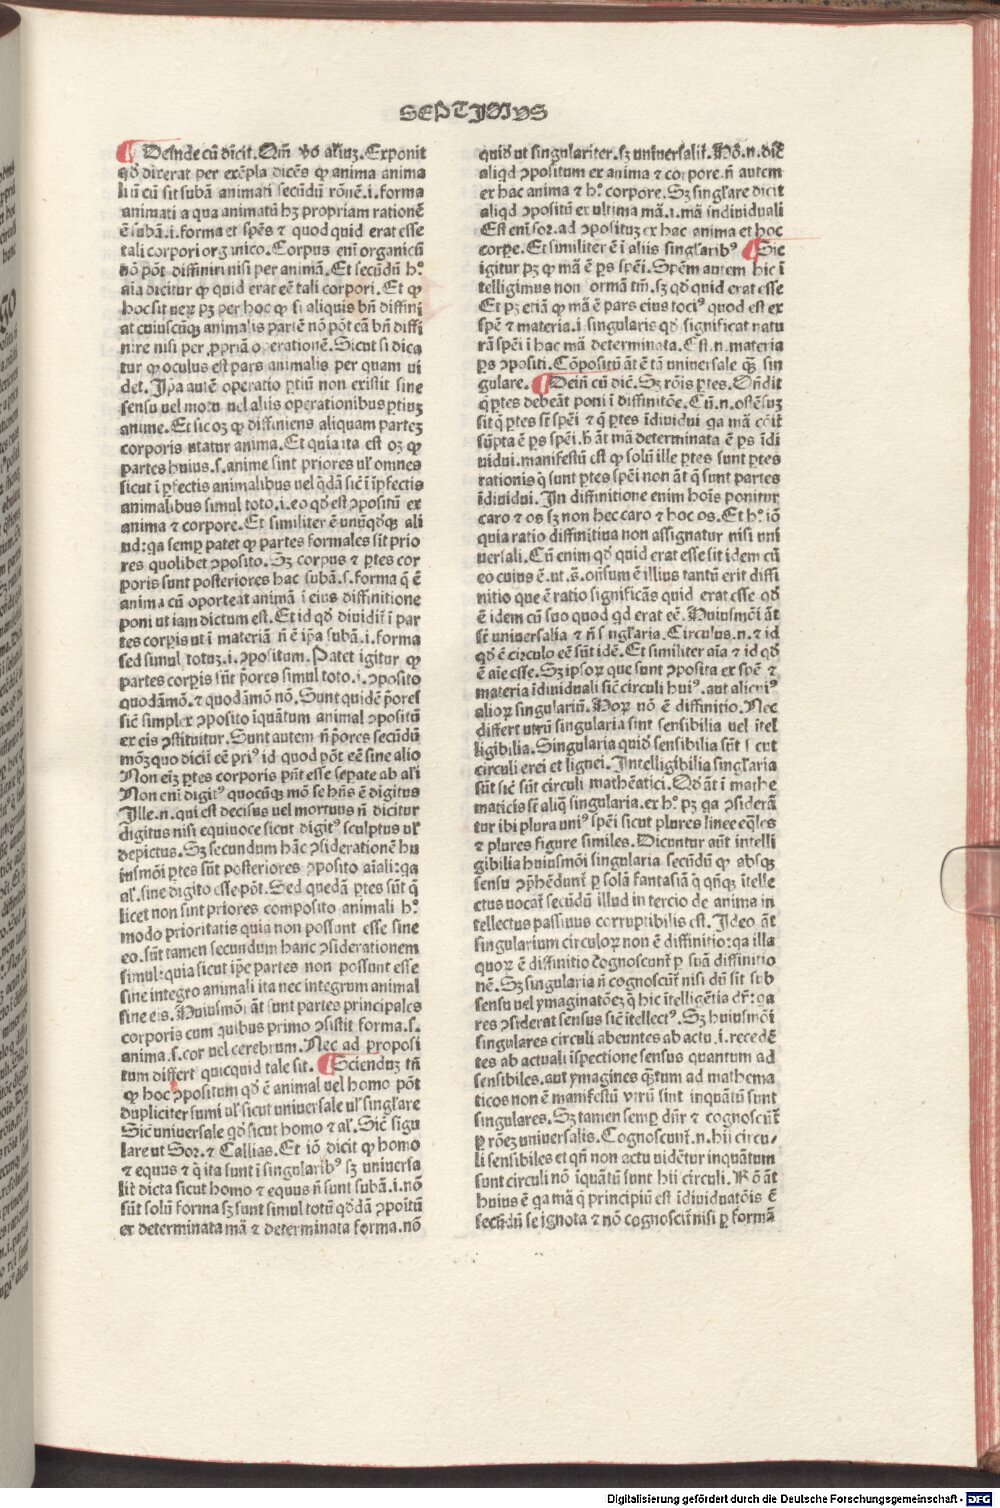 SEPTIMVS
¶ Deinde cū dicit. Qm̄ v̄o aliuꝫ. Exponit
qd̄ dixerat per exēpla dicēs ꝙ anima anima
liū cū sit subā animati secūdū rōnē .i. forma
animati a qua animatū hꝫ propriam rationē
ē subā .i. forma et spēs ⁊ quod quid erat esse
tali corpori organico. Corpus enī organicū
nō pōt diffiniri nisi per animā. Et secūdū hͦ.
aīa dicitur ꝙ quid erat eē tali corpori. Et ꝙ
hoc sit verꝫ pꝫ per hoc ꝙ si aliquis bn̄ diffini
at cuiuscūqꝫ animalis partē nō pōt eā bn̄ diffi
nire nisi per ꝓpriā operationē. Sicut si dica
tur ꝙ oculus est pars animalis per quam vi
det. Ip̄a autē operatio ꝑtiū non existit sine
sensu uel motu uel aliis operationibus ꝑtiuꝫ
anime. Et sic oꝫ ꝙ diffiniens aliquam parteꝫ
corporis utatur anima. Et quia ita est oꝫ ꝙ
partes huius .s. anime sint priores ul̄ omnes
sicut ī ꝑfectis animalibus uel qd̄ā sic̄ ī īpfectis
animalibus simul toto .i. eo qd̄ est ↄpositū ex
anima ⁊ corpore. Et similiter ē unūqd̄qꝫ ali
ud: qa semꝑ patet ꝙ partes formales sīt prio
res quolibet ↄposito. Sꝫ corpus ⁊ ꝑtes cor
poris sunt posteriores hac subā .s. forma q̄ ē
anima cū oporteat animā ī eius diffinitione
poni ut iam dictum est. Et id qd̄ diuidit̄ ī par
tes corꝑis ut ī materiā n̄ ē ip̄a subā .i. forma
sed simul totuꝫ .i. ↄpositum. Patet igitur ꝙ
partes corꝑis sūt p̄ores simul toto .i. ↄposito
quodāmō. ⁊ quodāmō nō. Sunt quidē p̄ores
sic̄ simplex ↄposito īquātum animal ↄpositū
ex eis ↄstituitur. Sunt autem n̄ p̄ores secūdū
mōꝫ quo dicit̄ eē priꝰ id quod pōt eē sine alio
Non eīꝫ ꝑtes corporis pn̄t esse seꝑate ab aīali
Non enī digitꝰ quocūqꝫ mō se hn̄s ē digitus
Ille .n. qui est decisus uel mortuus n̄ dicitur
digitus nisi equiuoce sicut digitꝰ sculptus ul̄
depictus. Sꝫ secundum hāc ↄsiderationē hu
iusmōi ꝑtes sūt posteriores ↄposito aīali: qa
aīal. sine digito esse pōt. Sed quedā ꝑtes sūt q̄
licet non sint priores composito animali hͦ.
modo prioritatis quia non possunt esse sine
eo. sūt tamen secundum hanc ↄsiderationem
simul: quia sicut ip̄e partes non possunt esse
sine integro animali ita nec integrum animal
sine eis. Huiusmōi āt sunt partes principales
corporis cum quibus primo ↄsistit forma .s.
anima .s. cor uel cerebrum. Nec ad proposi
tum differt quicquid tale sit. ¶ Scienduꝫ tn̄
ꝙ hoc ↄpositum qd̄ ē animal uel homo pōt
dupliciter sumi ul̄ sicut uniuersale ul̄ singl̄are
Sic̄ uniuersale qd̄ sicut homo ⁊ aīal. Sic̄ sigu
lare ut Sor. ⁊ Callias. Et iō dicit ꝙ homo
⁊ equus ⁊ q̄ ita sunt ī singularibꝰ sꝫ uniuersa
lit̄ dicta sicut homo ⁊ equus n̄ sunt subā .i. nō
sūt solū forma sꝫ sunt simul totū qd̄dā ↄpoitū
ex determinata mā ⁊ determinata forma. nō
quid̄ ut singulariter. sꝫ uniuersalit̄. Hō .n. dic̄
aliqd ↄpositum ex anima ⁊ corpore. n̄ autem
ex hac anima ⁊ hͦ. corpore. Sꝫ singl̄are dicit
aliqd ↄpositū ex ultima mā .i. mā indiuiduali
Est enī sor. ad ↄpositus ex hac anima et hoc
corꝑe. Et similiter ē ī aliis singl̄aribꝰ ¶ Sic
igitur pꝫ ꝙ mā ē ꝑs spēi. Spēm autem hic ī
telligimus non formā tm̄. sꝫ qd̄ quid erat esse
Et pꝫ etiā ꝙ mā ē pars eius totiꝰ quod est ex
spē ⁊ materia .i. singularis qd̄ significat natu
rā spēi ī hac mā determinata. Est .n. materia
ꝑs ↄpositi. Cōpositū āt ē tā uniuersale q̄ꝫ sin
gulare. ¶ Dein̄ cū dic̄. Sꝫ rōis ꝑtes. Oñdit
q̄ ꝑtes debeāt poni ī diffinitōe. Cū .n. ostēsuꝫ
sit q̄ ꝑtes sīt spēi ⁊ q̄ ꝑtes īdiuidui qa mā cōit̄
sūpta ē ꝑs spēi. h̄ āt mā determinata ē ꝑs īdi
uidui. manifestū est ꝙ solū ille ꝑtes sunt ꝑtes
rationis q̄ sunt ꝑtes spēi non āt q̄ sunt partes
īdiuidui. In diffinitione enim hoīs ponitur
caro ⁊ os sꝫ non hec caro ⁊ hoc os. Et hͦ. iō
quia ratio diffinitiua non assignatur nisi uni
uersali. Cū enim qd̄ quid erat esse sit idem cū
eo cuius ē. ut .s̄. on̄sum ē illius tantū erit diffi
nitio que ē ratio significās quid erat esse qd̄
ē idem cū suo quod qd erat eē. Huiusmōi āt
sīt uniuersalia ⁊ n̄ singl̄aria. Circulus .n. ⁊ id
qd̄ ē circulo eē sūt idē. Et similiter aīa ⁊ id qd̄
ē aīe esse. Sꝫ ipsoꝝ que sunt ↄposita ex spē ⁊
materia īdiuiduali sic̄ circuli huiꝰ. aut alicuiꝰ
alioꝝ singulariū. Hoꝝ nō ē diffinitio. Nec
differt utrū singularia sint sensibilia uel ītel
ligibilia. Singularia quid̄ sensibilia sūt sicut
circuli erei et lignei. Intelligibilia singl̄aria
sūt sic̄ sūt circuli mathēatici. Qd̄ āt ī mathe
maticis sīt aliq̄ singularia. ex hͦ. pꝫ qa ↄsiderā
tur ibi plura uniꝰ spēi sicut plures linee eq̄les
⁊ plures figure similes. Dicuntur aūt intelli
gibilia huiusmōi singularia secūdū ꝙ absqꝫ
sensu ↄp̄hēdunt̄ ꝑ solā fantasiā q̄ qn̄qꝫ ītelle
ctus uocat̄ secūdū illud in tercio de anima in
tellectus passiuus corruptibilis est. Ideo āt
singularium circuloꝝ non ē diffinitio: qa illa
quoꝝ ē diffinitio cognoscunt̄ ꝑ suā diffinitio
nē. Sꝫ singularia n̄ cognoscūt̄ nisi dū sīt sub
sensu uel ymaginatōeꝫ q̄ hic ītelligētia dr̄: qa
res ↄsiderat sensus sic̄ ītellectꝰ. Sꝫ huiusmōi
singulares circuli abeuntes ab actu .i. recedē
tes ab actuali īspectione sensus quantum ad
sensibiles. aut ymagines q̄ꝫtum ad mathema
ticos non ē manifestū vtrū sint inquātū sunt
singulares. Sꝫ tamen semꝑ dn̄r ⁊ cognoscūt̄
ꝑ rōeꝫ uniuersalis. Cognoscunt̄ .n. hii circu⸗
li sensibiles et qn̄ non actu uidētur inquātum
sunt circuli nō īquātū sunt hii circuli. Rō āt
huius ē qa mā q̄ principiū est īdiuiduatōis ē
secūdū se ignota ⁊ nō cognoscit̄ nisi ꝑ formā
Digitalisierung gefördert durch die Deutsche Forschungsgemeinschaft - DFG